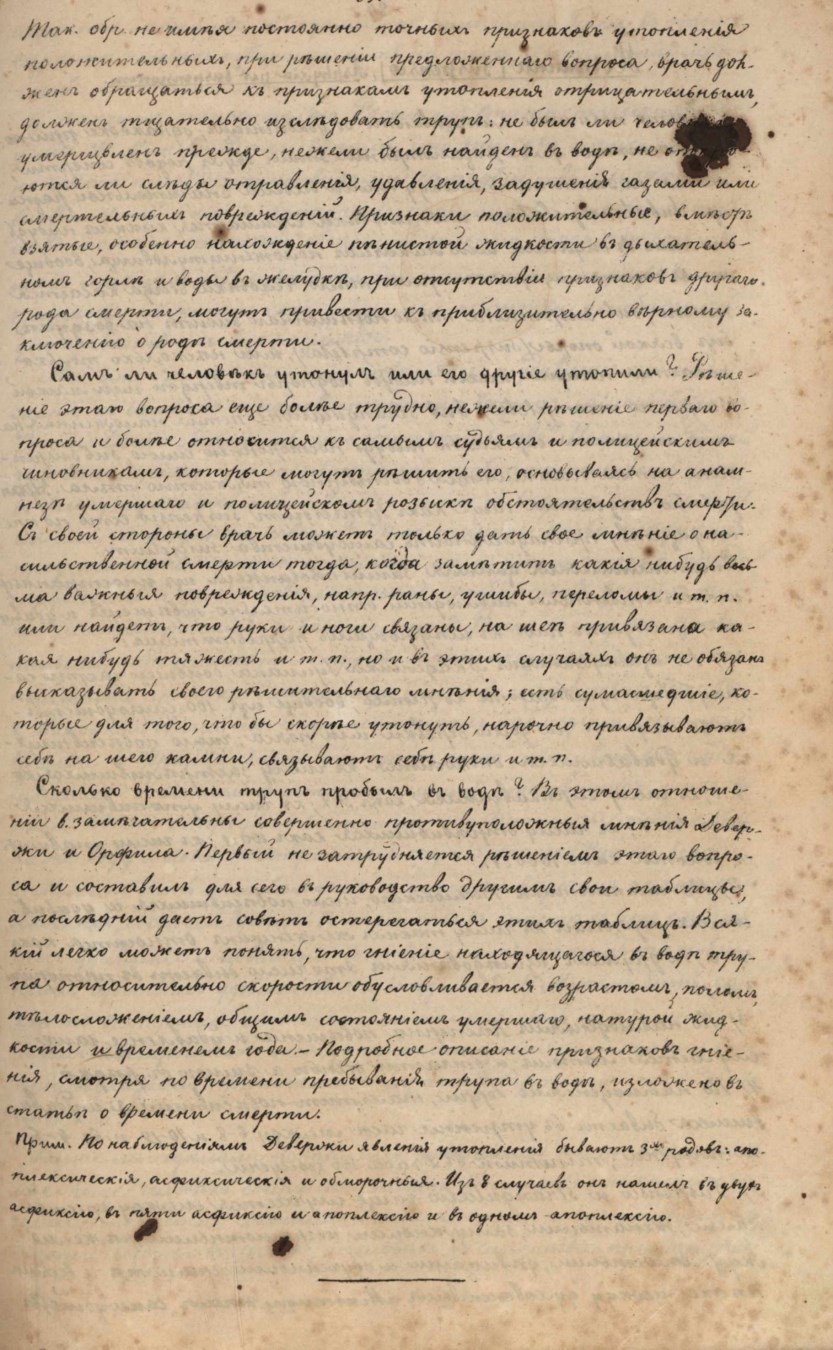 Так. обр. не имѣя постоянно точныхъ признаковъ утопленія
положительныхъ, при рѣшеніи предложеннаго вопроса, врачъ дол-
женъ обращаться къ признакамъ утопленія отрицательнымъ,
долженъ тщательно изслѣдовать трупъ: не былъ ли
умерщвленъ прежде, нежели былъ найденъ въ водѣ, не
ются ли слѣды отравленія, удавленія, задушенія газами или
смертельныхъ поврежденій. Признаки положительные, вмѣстѣ
взятые, особенно нахожденіе пѣнистой жидкости въ дыхатель-
номъ горлѣ и воды въ желудкѣ, при отсутствіи признаковъ другаго
рода смерти, могутъ привести къ приблизительно вѣрному за-
ключенію о родѣ смерти.
Самъ ли человѣкъ утонулъ или его другіе утопили? Рѣше-
ніе этаго вопроса еще болѣе трудно, нежели рѣшеніе перваго во-
проса и болѣе относится къ самымъ судьямъ и полицейскимъ
чиновникамъ, которые могутъ рѣшить его, основываясь на анам-
незѣ умершаго и полицейскомъ розыскѣ обстоятельствъ смерти.
Съ своей стороны врачъ можетъ только дать свое мнѣніе о на-
сильственной смерти тогда, когда замѣтитъ какія нибудь весь
ма важныя поврежденія, напр. раны, ушибы, переломы и т. п.
или найдетъ, что руки и ноги связаны, на шеѣ привязана ка-
кая нибудь тяжесть и т. п., но и въ этихъ случаяхъ онъ не обязанъ
высказывать своего рѣшительнаго мнѣнія; есть сумасшедшіе, ко-
торые для того, что бы скорѣе утонуть, нарочно привязываютъ
себѣ на шею камни, связываютъ себѣ руки и т. п.
Сколько времени трупъ пробылъ въ водѣ? Въ этомъ отноше-
ніи в. замѣчательны совершенно противуположныя мнѣнія Девер-
жи и Орфила. Первый не затрудняется рѣшеніемъ этаго вопро-
са и составилъ для сего въ руководство другимъ свои таблицы,
а послѣдній даетъ совѣтъ остерегаться этихъ таблицъ. Вся-
кій легко можетъ понять, что гніеніе находящагося въ водѣ тру-
па относительно скорости обусловливается возрастомъ, поломъ,
тѣлосложеніемъ, общимъ состояніемъ умершаго, натурой жид-
кости и временемъ года. – Подробное описаніе признаковъ гніе-
нія, смотря по времени пребыванія трупа въ водѣ, изложено въ
статьѣ о времени смерти.
Прим. По наблюденіямъ Девержи явленія утопленія бываютъ 3хъ родовъ: апо-
плексическія, асфиксическія и обморочныя. Изъ 8 случаевъ онъ нашелъ въ двухъ
асфиксію, въ пяти асфиксію и апоплексію и въ одномъ апоплексію.